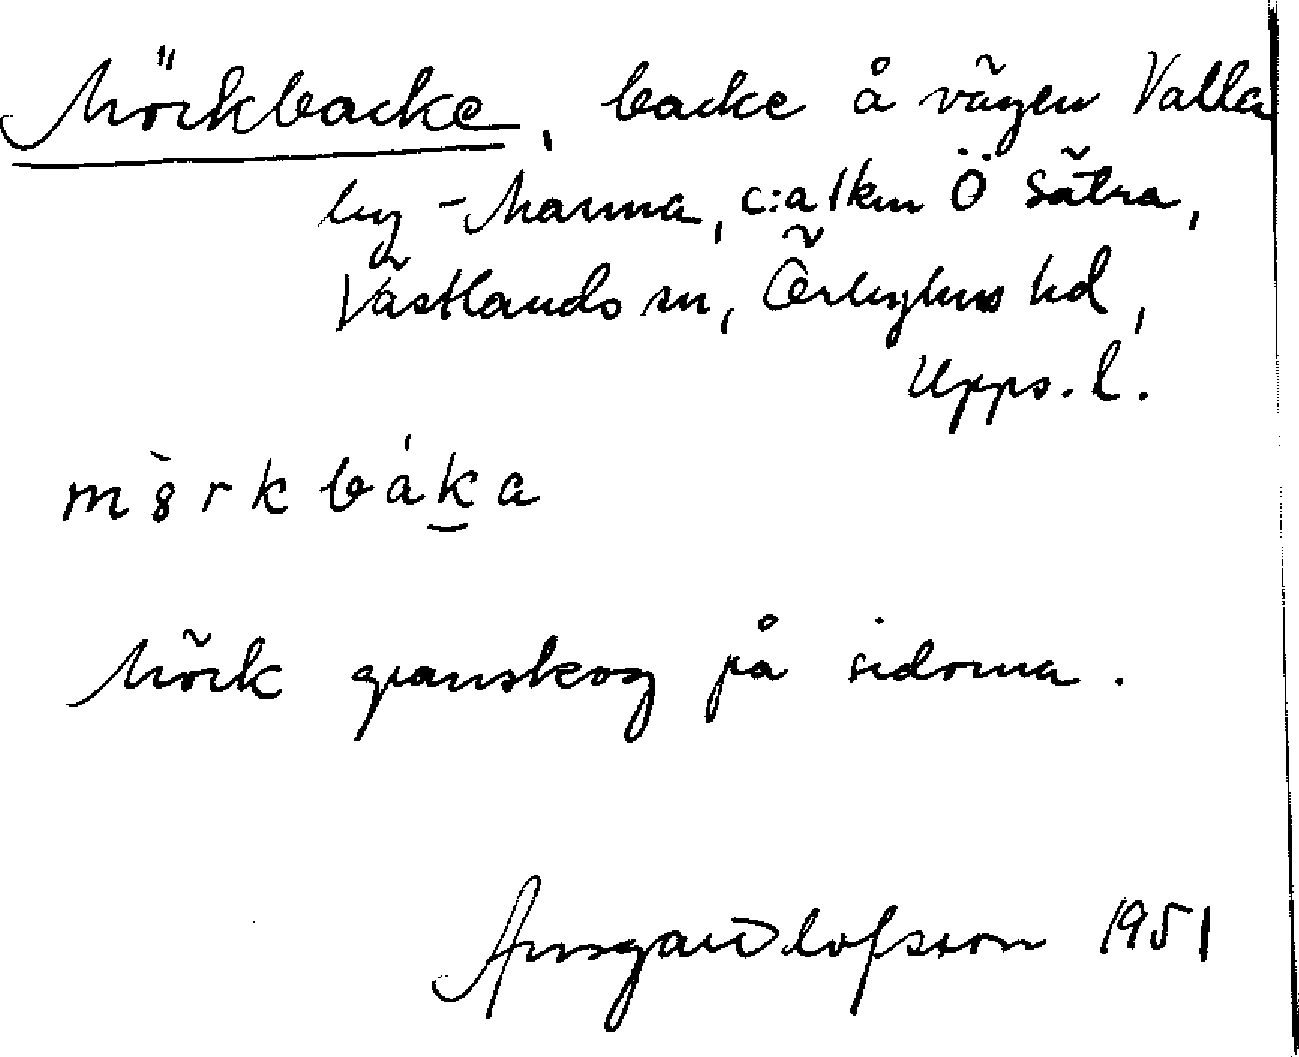 Mörkbacke, backe å vägen Valla
by - Marma, c:a 1 km Ö Sätra,
Västlands sn, Örbyhus hd,
Upps. l.
m̀örkbáka
Mörk granskog på sidorna.
Ansgar Olofsson 1951